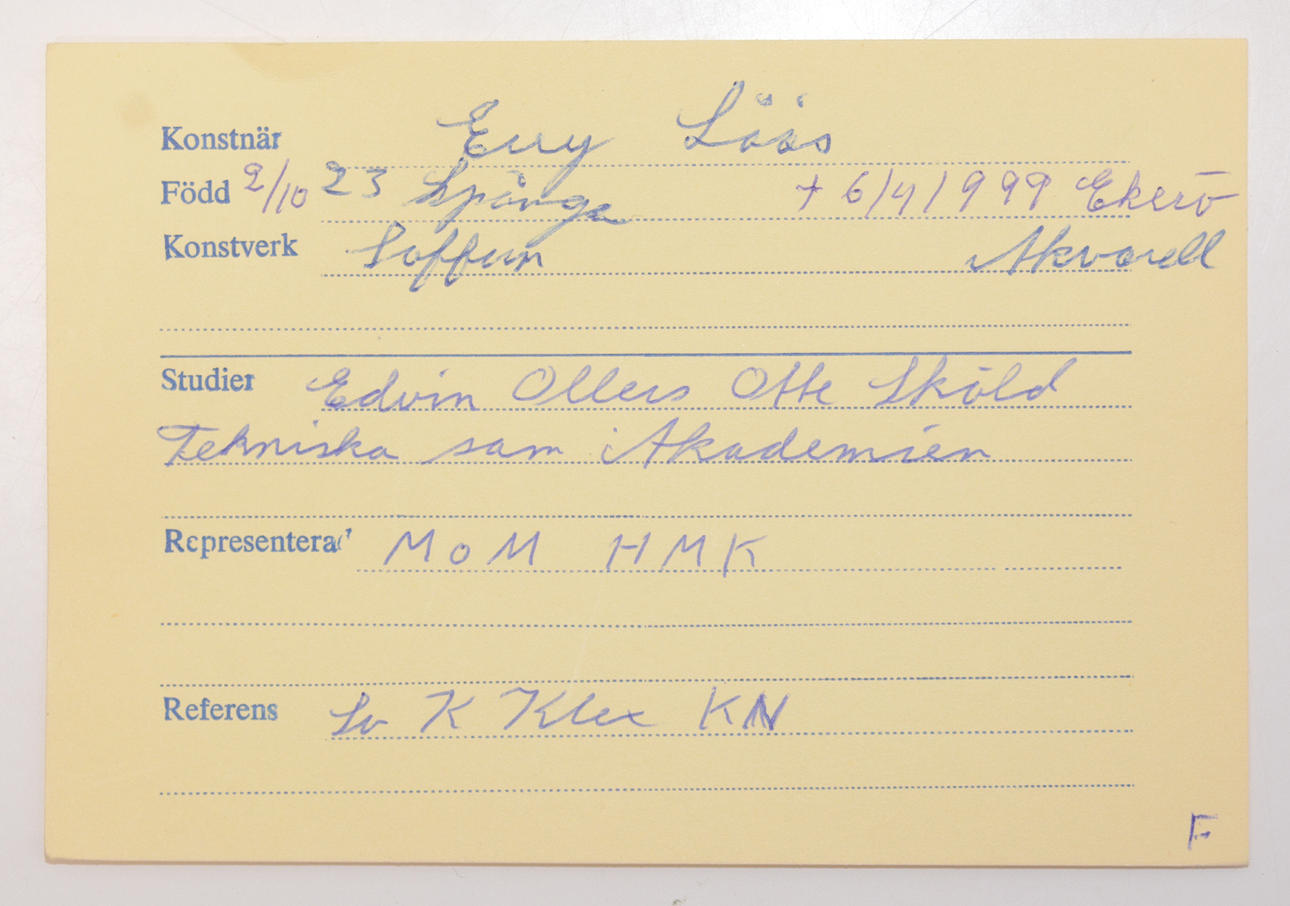 Konstnär Erry Löös
Född 2/10 23 Spånga + 6/4/1999 Ekerö
Konstverk Soffum Akvarell
Studier Edvin Ollers Otte Sköld
Tekniska sam Akademien
Representerad MoM HMK
Referens Sv K Klex KN
F